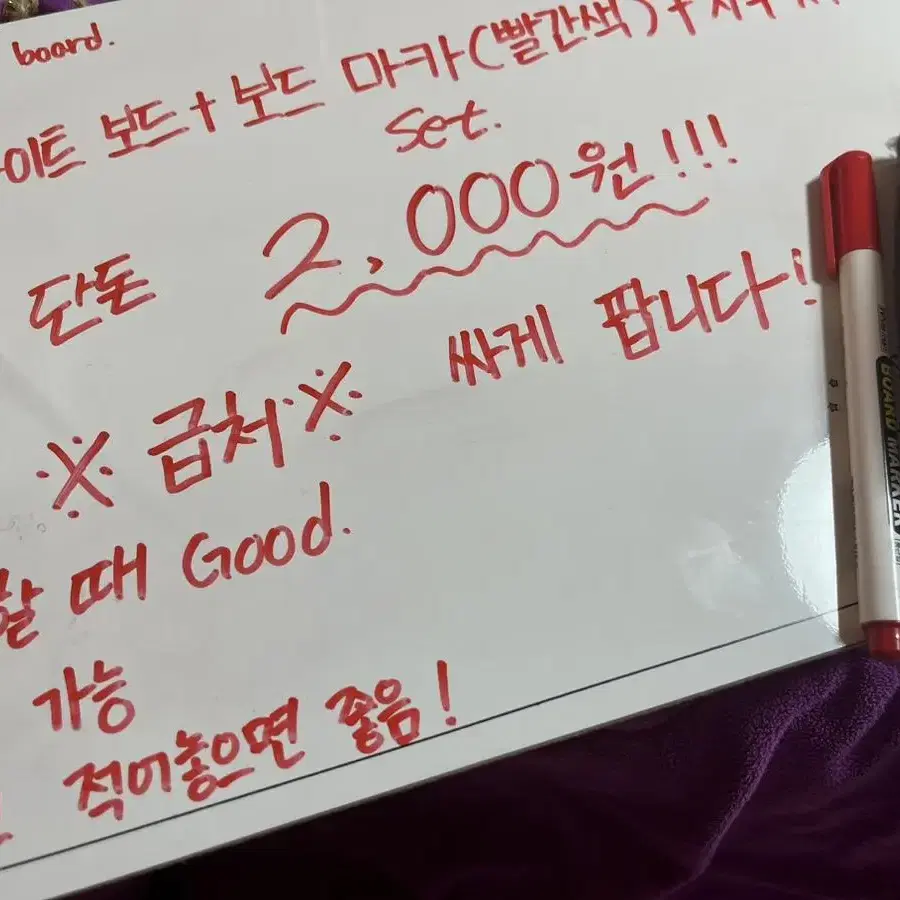 board.
이트 보드 + 보드 마카(빨간색) +
set.
단돈 2,000원!!!
※급처※ 싸게 팝니다!
할 때 Good.
가능
적어놓으면 좋음!
BOARD MARKER